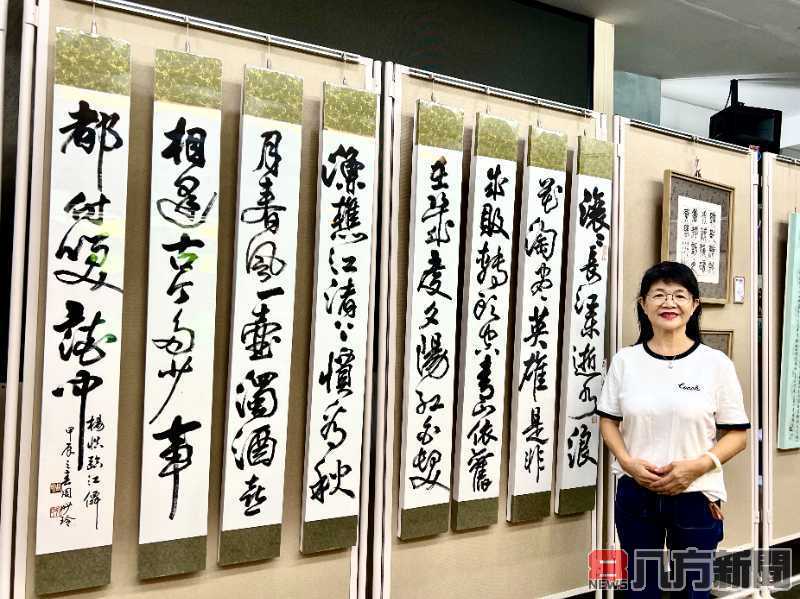 滾滾長江東逝水浪
花淘盡英雄是非
成敗轉頭空青山依舊
在幾度夕陽紅白髮
漁樵江渚上慣看秋
月春風一壺濁酒喜
相逢古今多少事
都付笑談中
楊慎臨江僊
甲辰之夏周妙玲
Coach
8 NEWS 八方新聞